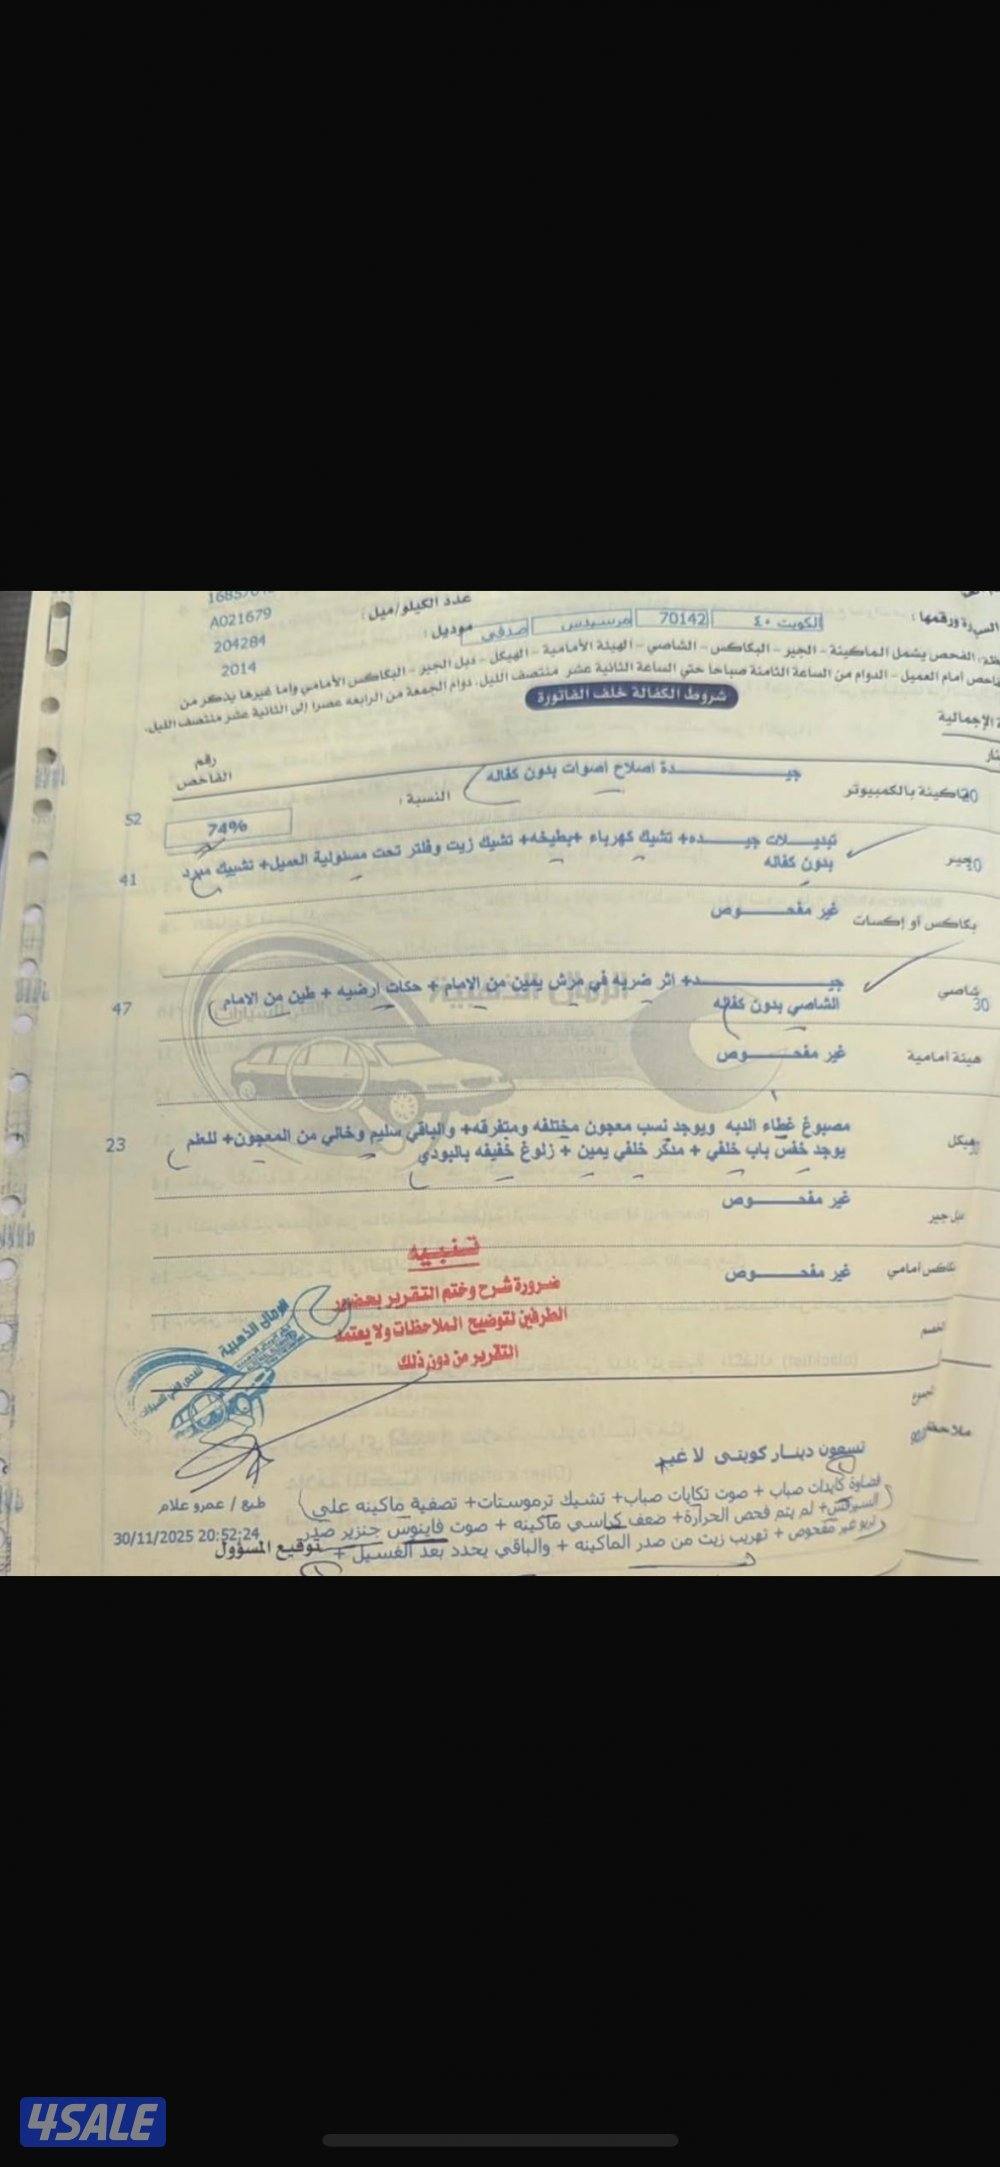 عدد الكيلو/ميل :
A021679
السيارة ورقمها : الكويت ٤٠ 70142 مرسيدس صدفي موديل :
204284
2014
الفحص يشمل الماكينة - الجير - البكاكس - الشاصي - الهيئة الأمامية - الهيكل - دبل الجير - البكاكس الأمامي وما غيرها يذكر من
أمام العميل - الدوام من الساعة الثامنة صباحا حتي الساعة الثانية عشر منتصف الليل. دوام الجمعة من الرابعة عصرا إلى الثانية عشر منتصف الليل.
شروط الكفالة خلف الفاتورة
الإجمالية
رقم الفاحص
ماكينة بالكمبيوتر
جيـــــدة اصلاح اصوات بدون كفاله
النسبة :
74%
52
جير
تبديـــلات جيـــده+ تشيك كهرباء +بطيخه+ تشيك زيت وفلتر تحت مسئولية العميل+ تشييك مبرد
بدون كفاله
41
بكاكس أو إكسات
غير مفحـــوص
شاصي
30
جيـــــد+ اثر ضربه في مرش يمين من الامام + حكات ارضيه + طين من الامام
الشاصي بدون كفاله
47
هيئة أمامية
غير مفحـــوص
هيكل
مصبوغ غطاء الدبه ويوجد نسب معجون مختلفه ومتفرقه+ والباقي سليم وخالي من المعجون+ للعلم
يوجد خفس باب خلفي + مدكر خلفي يمين + زلوغ خفيفه بالبودي
23
دبل جير
غير مفحـــوص
بكاكس أمامي
غير مفحـــوص
تنبيه
ضرورة شرح وختم التقرير بحضور
الطرفين لتوضيح الملاحظات ولا يعتمد
التقرير من دون ذلك
الرمال الذهبية
الخصم
المجموع
ملاحظة
تسعون دينار كويتى لا غير
قضاوة كايدات صباب + صوت تكايات صباب+ تشيك ترموستات+ تصفية ماكينه علي
السيرفس+ لم يتم فحص الحرارة+ ضعف كراسي ماكينه + صوت فاينوس جنزير صدر
تربو غير مفحوص + تهريب زيت من صدر الماكينه + والباقي يحدد بعد الغسيل +
طبع / عمرو علام
30/11/2025 20:52:24
توقيع المسؤول
4SALE